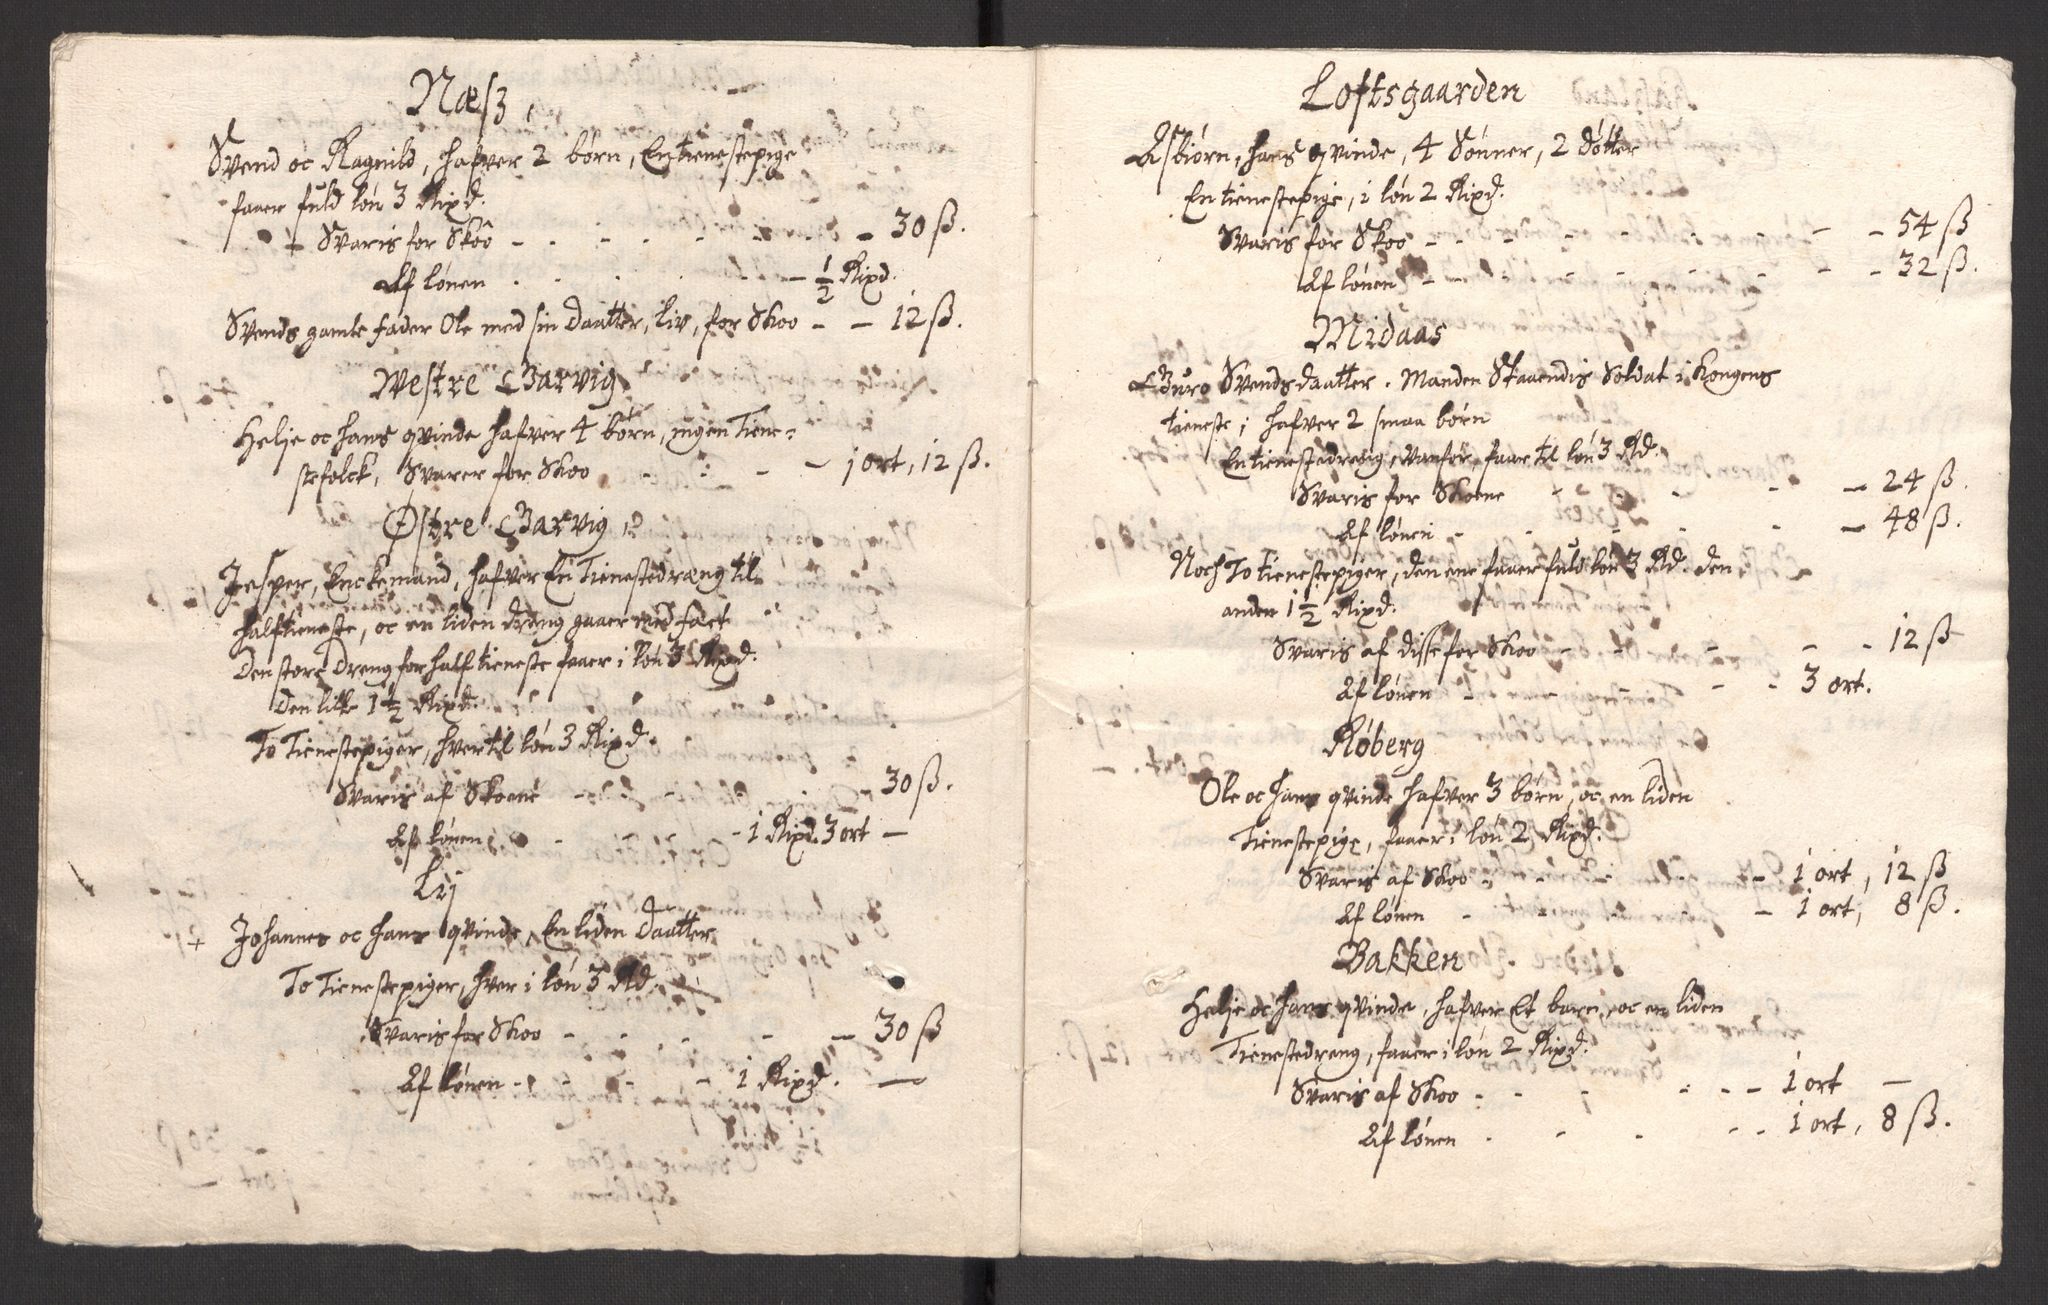 Næsz,
Svend oc Ragnild, hafver 2 børn, En tienestepige
faaer fuld løn 3 Rixd.
Svaris for Skoo - - - - - - - 30 ß.
Af lønen - - - - ½ Rixd.
Svends gamle fader Ole med sin daatter, liv, for Skoo - - 12 ß.
Westre Barvig
Helje oc hans qvinde hafver 4 børn, ingen Tiene-
stefolck, Svarer for Skoo - - - - 1 ort, 12 ß.
Østre Barvig
Jesper, Enckemand, hafver En Tienestedræng til
halftieneste, oc en liden dræng gaaer med fæet
Den store Dreng for half tieneste faaer i løn 3 Rixd.
Den lille 1½ Rixd.
To Tienestepiger, hver til løn 3 Rixd.
Svaris af Skoene - - - - 30 ß.
Af lønen - - 1 Rixd. 3 ort -
Lij
+ Johannes oc hans qvinde, En liden Daatter
To Tienestepiger, hver i løn 3 Rd.
Svaris for Skoo - - - - - 30 ß
Af lønen - - - - 1 Rixd. -
Loftsgaarden
Asbiørn, hans qvinde, 4 Sønner, 2 døtter
En tienestepige, i løn 2 Rixd.
Svaris for Skoo - - - - - - - 54 ß
Af lønen - - - - - - - 32 ß.
Midaas
Buro Svends daatter. Manden Staaendis Soldat i Kongens
tieneste, hafver 2 smaa børn
En tienestedreng, vanfør, faaer til løn 3 Rd.
Svaris for Skoene - - - - - 24 ß.
Af lønen - - - - - 48 ß.
Noch To tienestepiger, den ene faaer fuld løn 3 Rd. den
anden 1½ Rixd.
Svaris af disse for Skoo - - - - - 12 ß
Af lønen - - - - - 3 ort.
Røberg
Ole oc hans qvinde hafver 3 børn, oc en liden
Tienestepige, faaer i løn 2 Rixd.
Svaris af Skoo - - - - - 1 ort, 12 ß
Af lønen - - - - - 1 ort, 8 ß.
Bakken
Helje oc hans qvinde, hafver Et barn, oc en liden
Tienestedreng, faaer i løn 2 Rixd.
Svaris af Skoo - - - - - 1 ort -
Af lønen - - - - - 1 ort, 8 ß.